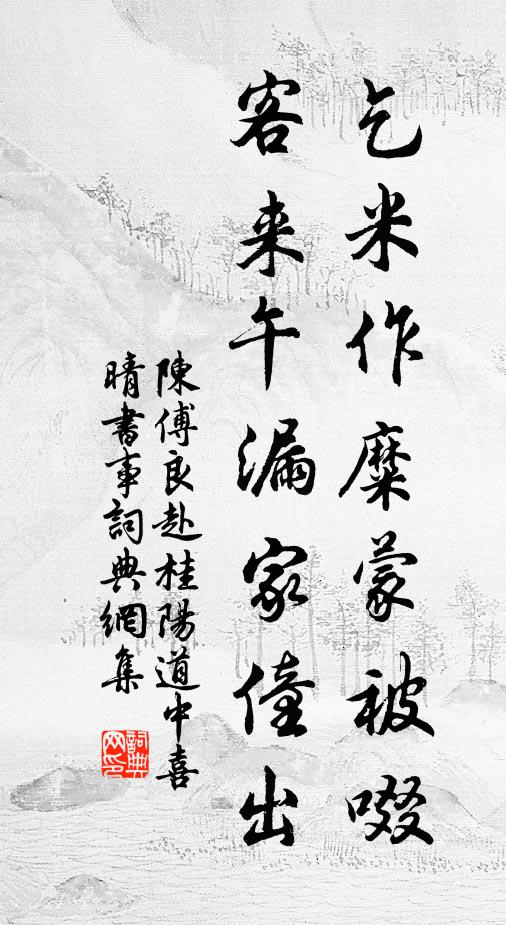 乞米作糜蒙被啜
客来午漏家僮出
陳傅良赴桂陽道中喜
晴書事詞典網集
詞典
网印